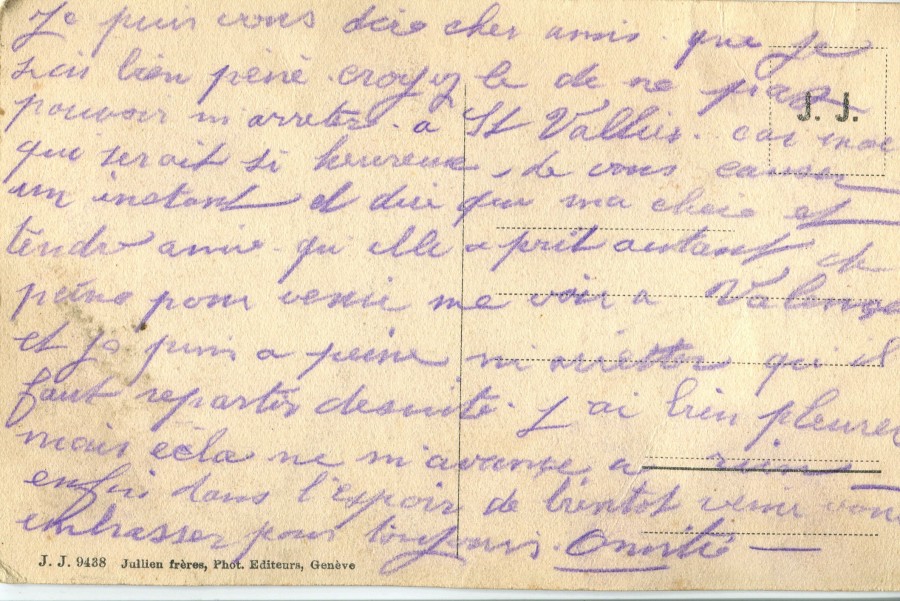 Je puis vous dire cher amis. que je
suis bien péné. croyez le de ne pas
pouvoir m'arreter. a St Vallier. car moi
qui serait si heureuse, de vous causer
un instant et dire que ma chere et
tendre amie. qui elle a prit autant de
peine pour venir me voir a Valence
et je puis a peine m'arretter qu'il
faut repartir desuite. J'ai bien pleurer
mais cela ne m'avance a rien
enfin dans l'espoir de bientot venir vous
embrasser pour toujours. Amitié —
J. J.
J. J. 9438 Jullien frères, Phot. Editeurs, Genève